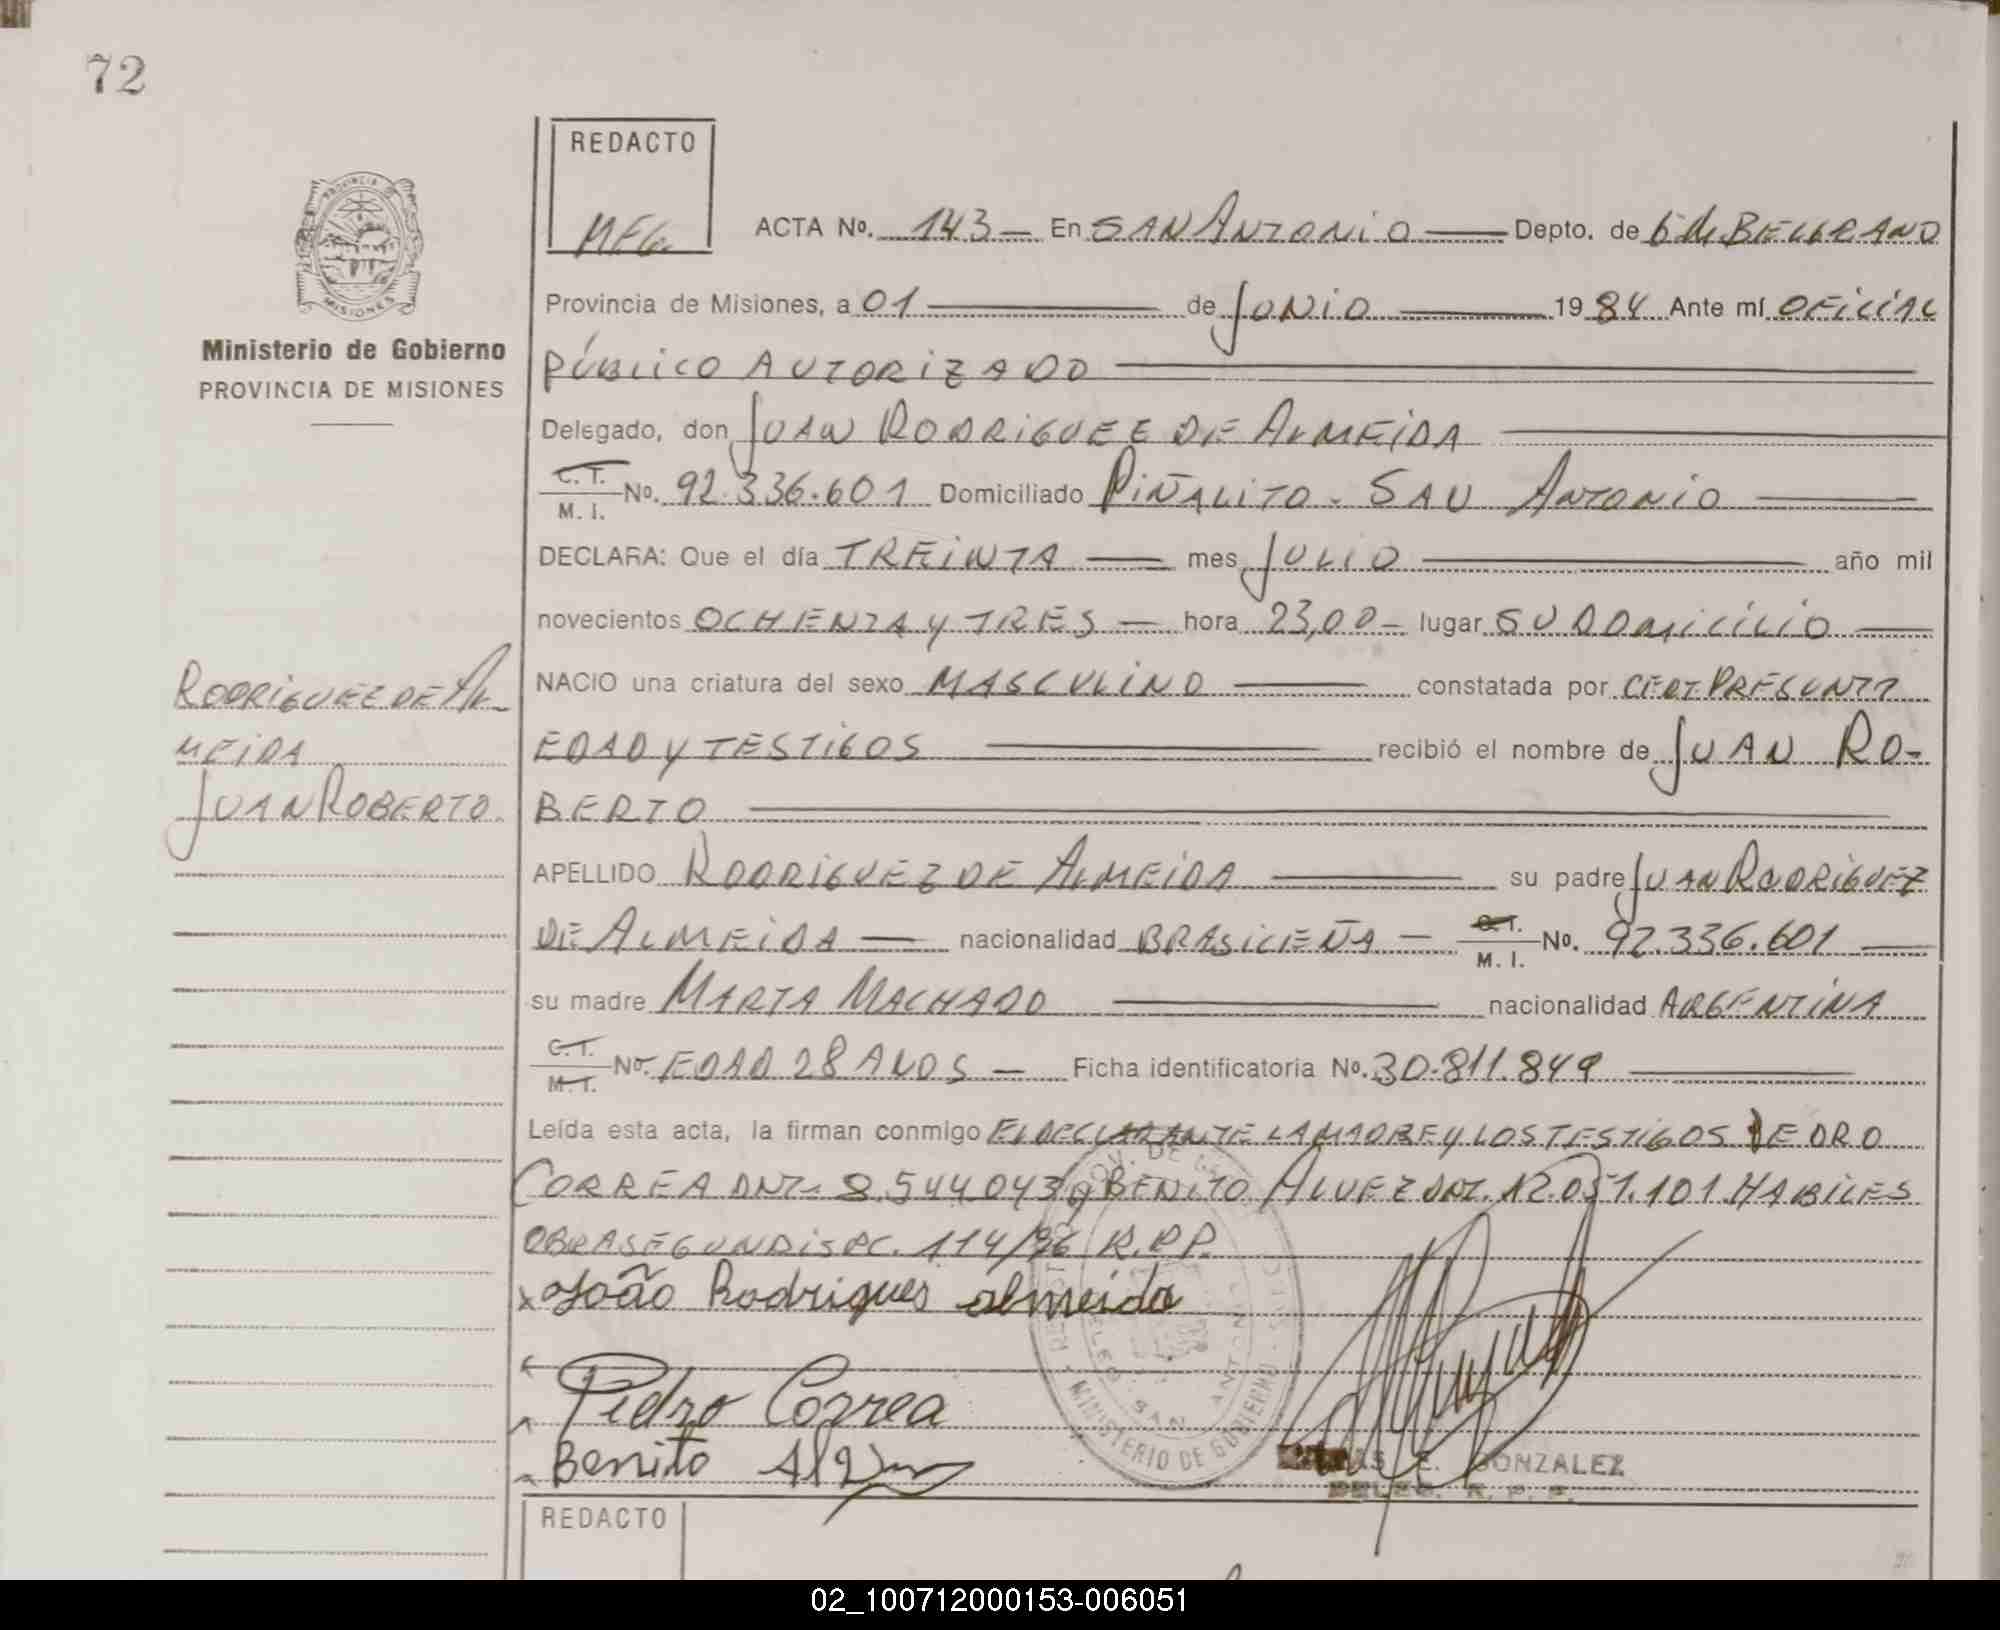 72
REDACTO
MFG.
ACTA No. 143 — En SAN ANTONIO — Depto. de G de BELGRANO
PROVINCIA DE MISIONES
Ministerio de Gobierno
PROVINCIA DE MISIONES
Provincia de Misiones, a 01 — de JUNIO — 1984 Ante mí OFICIAL
PÚBLICO AUTORIZADO —
Delegado, don JUAN RODRIGUEZ DE ALMEIDA —
C. T. / M. I. No. 92.336.601 Domiciliado PIÑALITO - SAN ANTONIO —
DECLARA: Que el día TREINTA — mes JULIO — año mil
novecientos OCHENTA Y TRES — hora 23,00 — lugar SU DOMICILIO —
RODRIGUEZ DE AL-
MEIDA
JUAN ROBERTO
NACIO una criatura del sexo MASCULINO — constatada por CERT PRESUNTA
EDAD Y TESTIGOS — recibió el nombre de JUAN RO-
BERTO —
APELLIDO RODRIGUEZ DE ALMEIDA — su padre JUAN RODRIGUEZ
DE ALMEIDA — nacionalidad BRASILEÑA — C.T. / M. I. No. 92.336.601 —
su madre MARTA MACHADO — nacionalidad ARGENTINA
C.T. / M.I. No. EDAD 28 AÑOS — Ficha identificatoria No. 30.811.849 —
Leída esta acta, la firman conmigo EL DECLARANTE LA MADRE Y LOS TESTIGOS PEDRO
CORREA DNI. 8.544043 y BENITO ALVEZ DNI. 12.051.101 HABILES
OBRA SEGUN DISPC. 114/76 R.P.P.
x João Rodrigues almeida
Pedro Correa
Benito
MINISTERIO DE GOBIERNO
DELEG. SAN ANTONIO
E. GONZALEZ
DELEG. R. P. P.
REDACTO
02_100712000153-006051